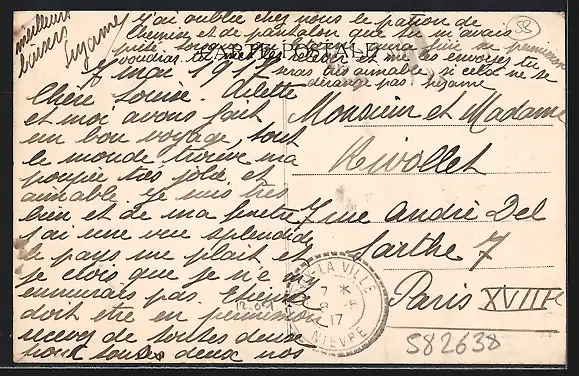 j'ai oublié chez nous le patron de
chemise et de pantalon que tu m'avais
prêté
voudrais tu me les envoyer tu
seras très aimable, si cela ne te
dérange pas Suzanne
meilleurs
baisers
Suzanne
CARTE POSTALE
7 mai 1917
Chère Louise. Arlette
et moi avons fait
un bon voyage, tout
le monde trouve ma
poupée très jolie et
aimable je suis très
bien et de ma fenetre
j'ai une vue splendide
le pays me plait et
je crois que je n'e m'y
ennuirais pas. Etienne
doit être en permission
recevez de toutes deux
pour toutes deux nos
Monsieur et Madame
Rivollet
7 rue André Del
Sarthe 7
Paris XVIIIe
LA VILLE
17
NIEVRE
582638
58